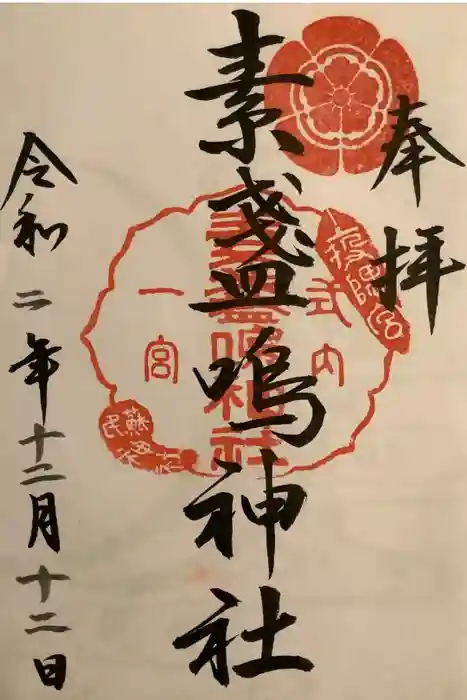 奉拝
素盞嗚神社
式内
素盞嗚神社
一宮
蘇民将来
令和二年十二月十二日